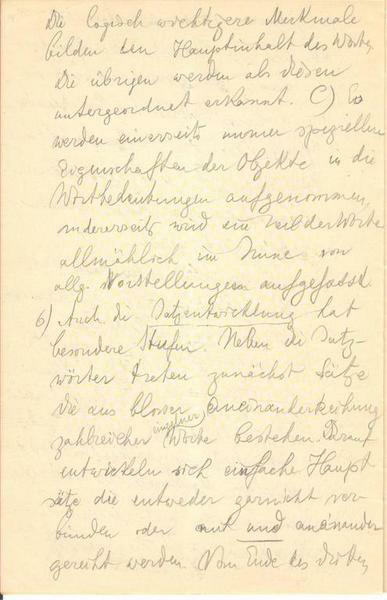 Die logisch wichtigere Merkmale
bilden den Hauptinhalt des Wortes,
Die übrigen werden als diesen
untergeordnet erkannt. C) Es
werden einerseits immer speziellere
Eigenschaften der Objekte in die
Wortbedeutungen aufgenommen,
andererseits wird ein Teil der Worte
allmählich im Sinne von
allg. Vorstellungen aufgefasst.
6) Auch die Satzentwicklung hat
besondere Stufen. Neben die Satz-
wörter treten zunächst Sätze
die aus blosser Aneinanderreihung
zahlreicher einzelner Worte bestehen. Darauf
entwickeln sich einfache Haupt
sätze die entweder garnicht ver-
bunden oder mit und aneinander
gereiht werden. Vom Ende des dritten